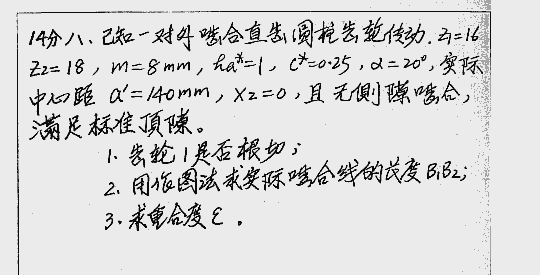 14分八、已知一对外啮合直齿圆柱齿轮传动. Z₁=16
Z₂=18, m=8mm, ha*=1, c*=0.25, α=20°, 实际
中心距 a'=140mm, X₂=0, 且无侧隙啮合,
满足标准顶隙。
1. 齿轮1是否根切;
2. 用作图法求实际啮合线的长度B₁B₂;
3. 求重合度ε。